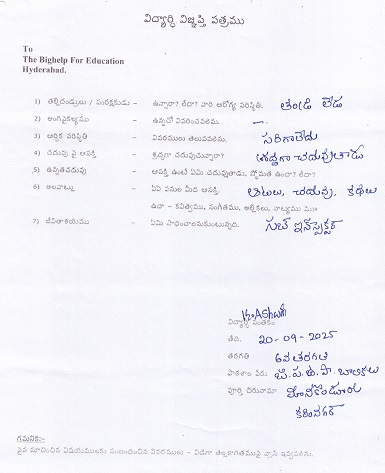 విద్యార్థి విజ్ఞప్తి పత్రము
To
The Bighelp For Education
Hyderabad.
1) తల్లిదండ్రులు / సంరక్షకుడు - ఉన్నారా? లేదా? వారి ఆరోగ్య పరిస్థితి. తండ్రి లేడు
2) అంగవైకల్యము - ఉన్నచో వివరించవలెను. —
3) ఆర్థిక పరిస్థితి - వివరములు తెలుపవలెను. సరిగాలేదు
4) చదువు పై ఆసక్తి - శ్రద్ధగా చదువుచున్నారా? శ్రద్ధగా చదువుతాడు
5) ఉన్నతచదువు - ఆసక్తి ఉంటే ఏమి చదువుతాడు, స్తోమత ఉందా? లేదా?
6) అలవాట్లు - ఏఏ పనుల మీద ఆసక్తి. ఆటలు, చదువు, కథలు
ఉదా - కవిత్వము, సంగీతము, ఆటలు, నాట్యము
7) జీవితాశయము - ఏమి సాధించాలనుకుంటున్నది. సబ్ ఇన్‌స్పెక్టర్
విద్యార్థి సంతకం
తేది. 20-09-2025
తరగతి 6వ తరగతి
పాఠశాల పేరు: జి.ప.ఉ.పా బాలికలు
పూర్తి చిరునామా మానకొండూరు
కరీంనగర్
గమనిక:-
పైన సూచించిన విషయములకు సంబంధించిన వివరములు - విడిగా తెల్లకాగితముపై వ్రాసి ఇవ్వవలెను.